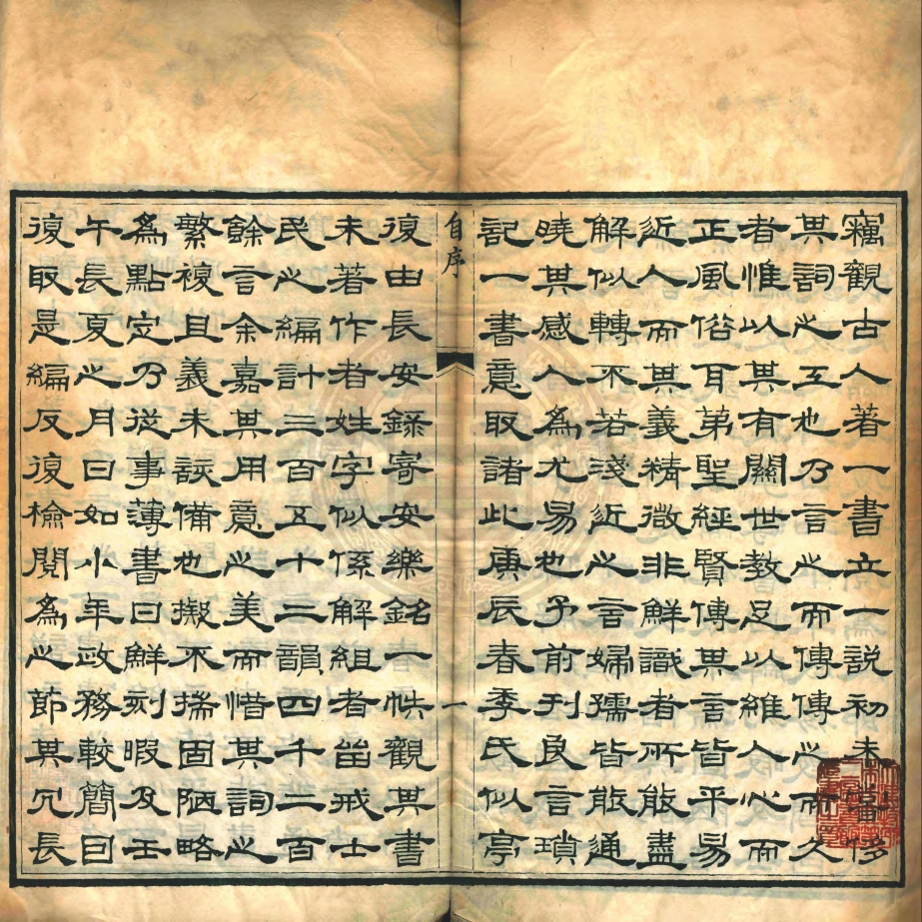 竊觀古人著一書立一說初未嘗侈
其詞之工也乃言之而傳傳之而久
者惟以其有關世教足以維人心而
正風俗耳第聖經賢傳其言皆平易
近人而其義精微非鮮識者所能盡
解似轉不若淺近之言婦孺皆能通
曉其感人為尤易也予前刊良言瑣
記一書意取諸此庚辰春季氏似亭
自序
一
復由長安錄寄安樂銘一帙觀其書
未著作者姓字似係解組者畄戒士
民之編計三百五十二韻四千二百
餘言余嘉其用意之美而惜其詞之
繁複且義未該備也擬不揣固陋略
為點定乃從事薄書日鮮刻暇及壬
午長夏之月日如小年政務較簡因
復取是編反復檢閱為之節其冗長